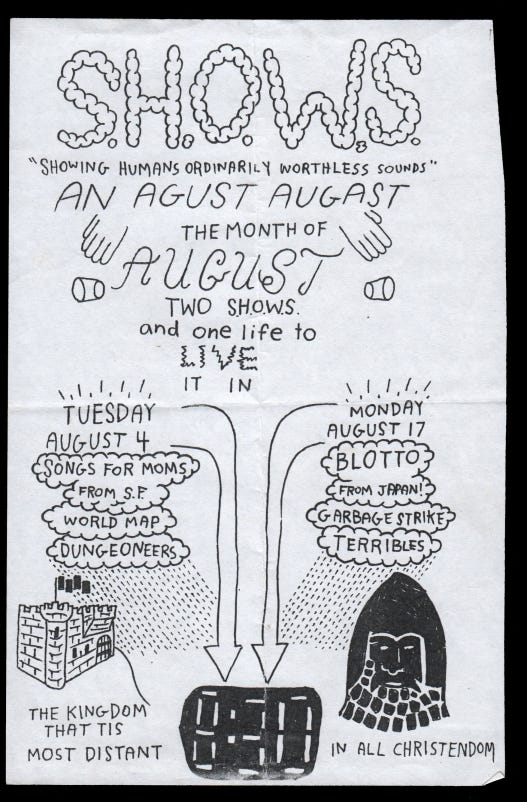 S.H.O.W.S.
"SHOWING HUMANS ORDINARILY WORTHLESS SOUNDS"
AN AGUST AUGAST
THE MONTH OF
AUGUST
TWO S.H.O.W.S.
and one life to
LIVE
IT IN
TUESDAY
AUGUST 4
SONGS FOR MOMS
FROM S.F.
WORLD MAP
DUNGEONEERS
MONDAY
AUGUST 17
BLOTTO
FROM JAPAN!
GARBAGE STRIKE
TERRIBLES
THE KINGDOM
THAT TIS
MOST DISTANT
8:30
IN ALL CHRISTENDOM